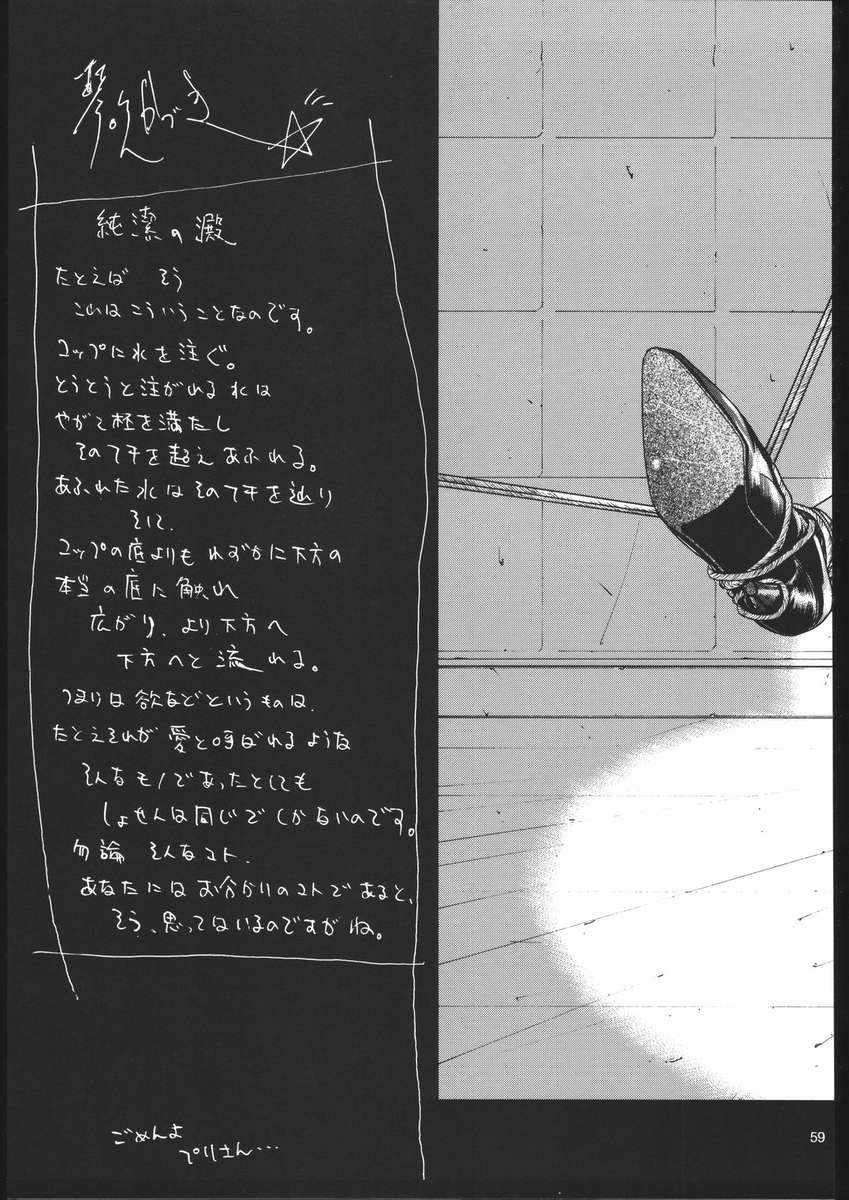 純潔の澱
たとえば そう
これはこういうことなのです。
コップに水を注ぐ。
とうとうと注がれる水は
やがて杯を満たし
そのフチを超えあふれる。
あふれた水はそのフチを辿り
そして、
コップの底よりもわずかに下方の
本当の底に触れ
広がり、より下方へ
下方へと流れる。
つまりは欲などというものは、
たとえそれが愛と呼ばれるような
そんなモノであったとしても
しょせんは同じでしかないのです。
勿論 そんなコト、
あなたにはお分かりのコトであると、
そう、思ってはいるのですがね。
ごめんよ
プリさん…
59